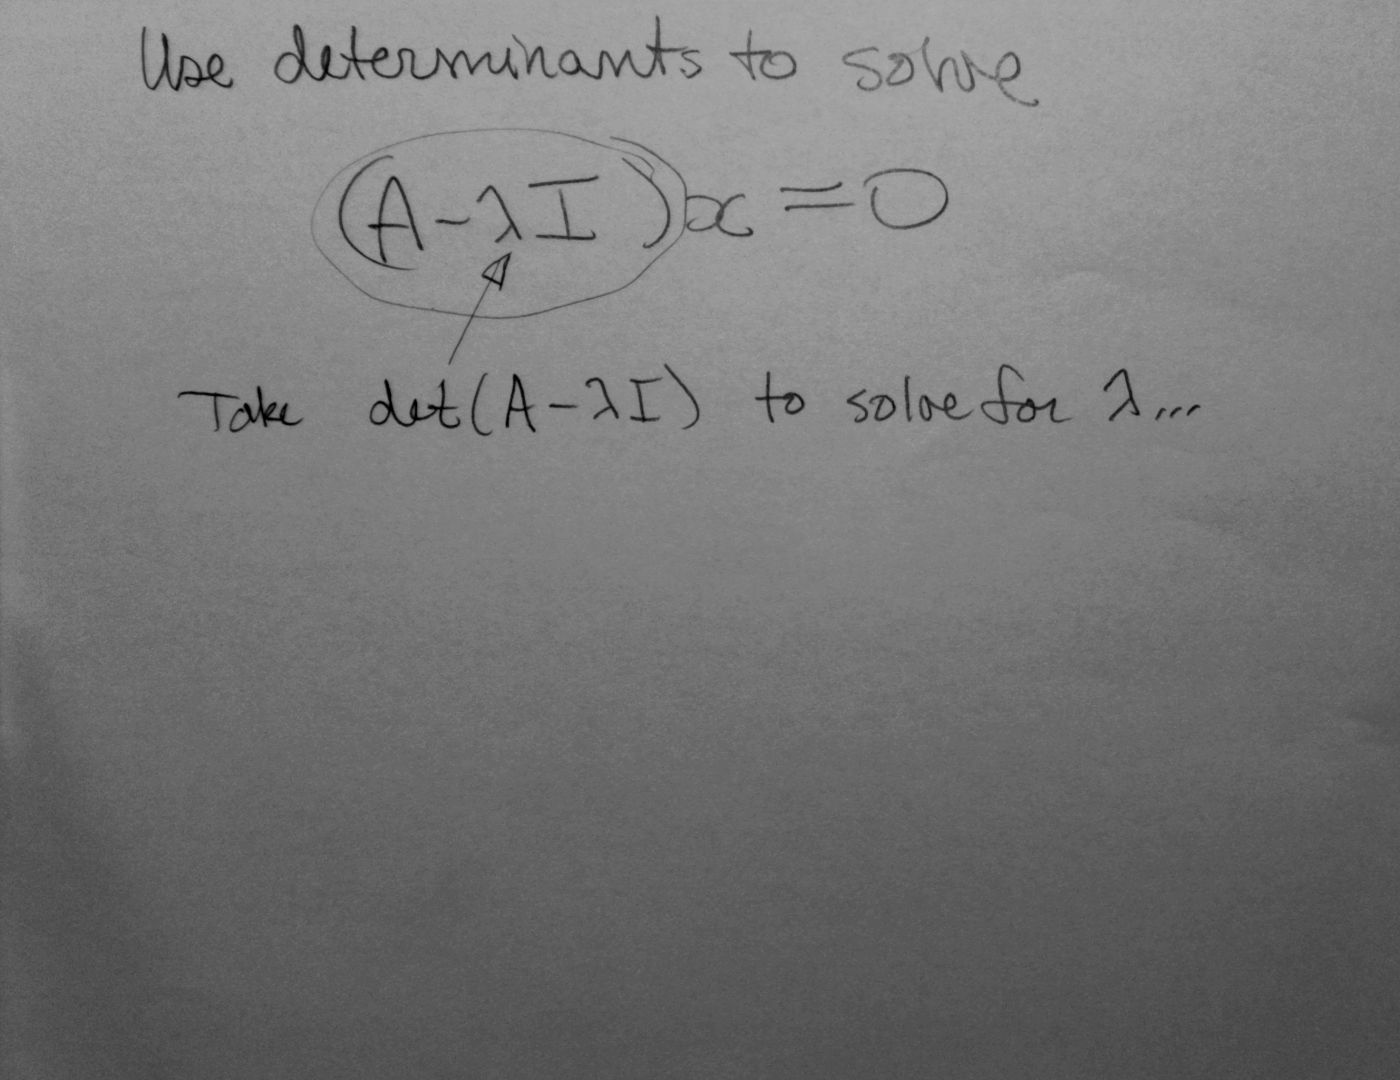 Use determinants to solve
(A-λI)x=0
Take det(A-λI) to solve for λ...